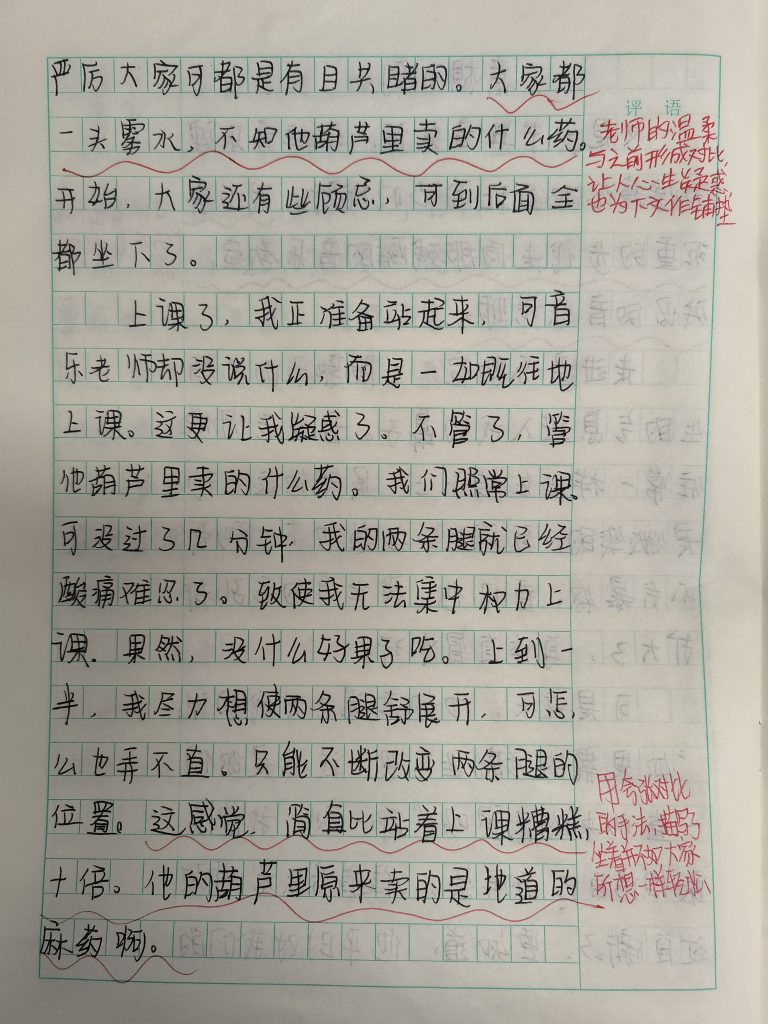 严厉大家可都是有目共睹的。大家都
一头雾水，不知他葫芦里卖的什么药。
开始，大家还有些顾忌，可到后面全
都坐下了。
上课了，我正准备站起来，可音
乐老师却没说什么，而是一如既往地
上课。这更让我疑惑了。不管了，管
他葫芦里卖的什么药。我们照常上课。
可没过了几分钟，我的两条腿就已经
酸痛难忍了。致使我无法集中权力上
课．果然，没什么好果子吃。上到一
半，我尽力想使两条腿舒展开，可怎
么也弄不直。只能不断改变两条腿的
位置。这感觉，简直比站着上课糟糕
十倍。他的葫芦里原来卖的是地道的
麻药啊。
评 语
老师的温柔
与之前形成对比，
让人心生疑惑
也为下文作铺垫
用夸张对比
的手法，描写了
坐着并不如大家
所想一样轻松